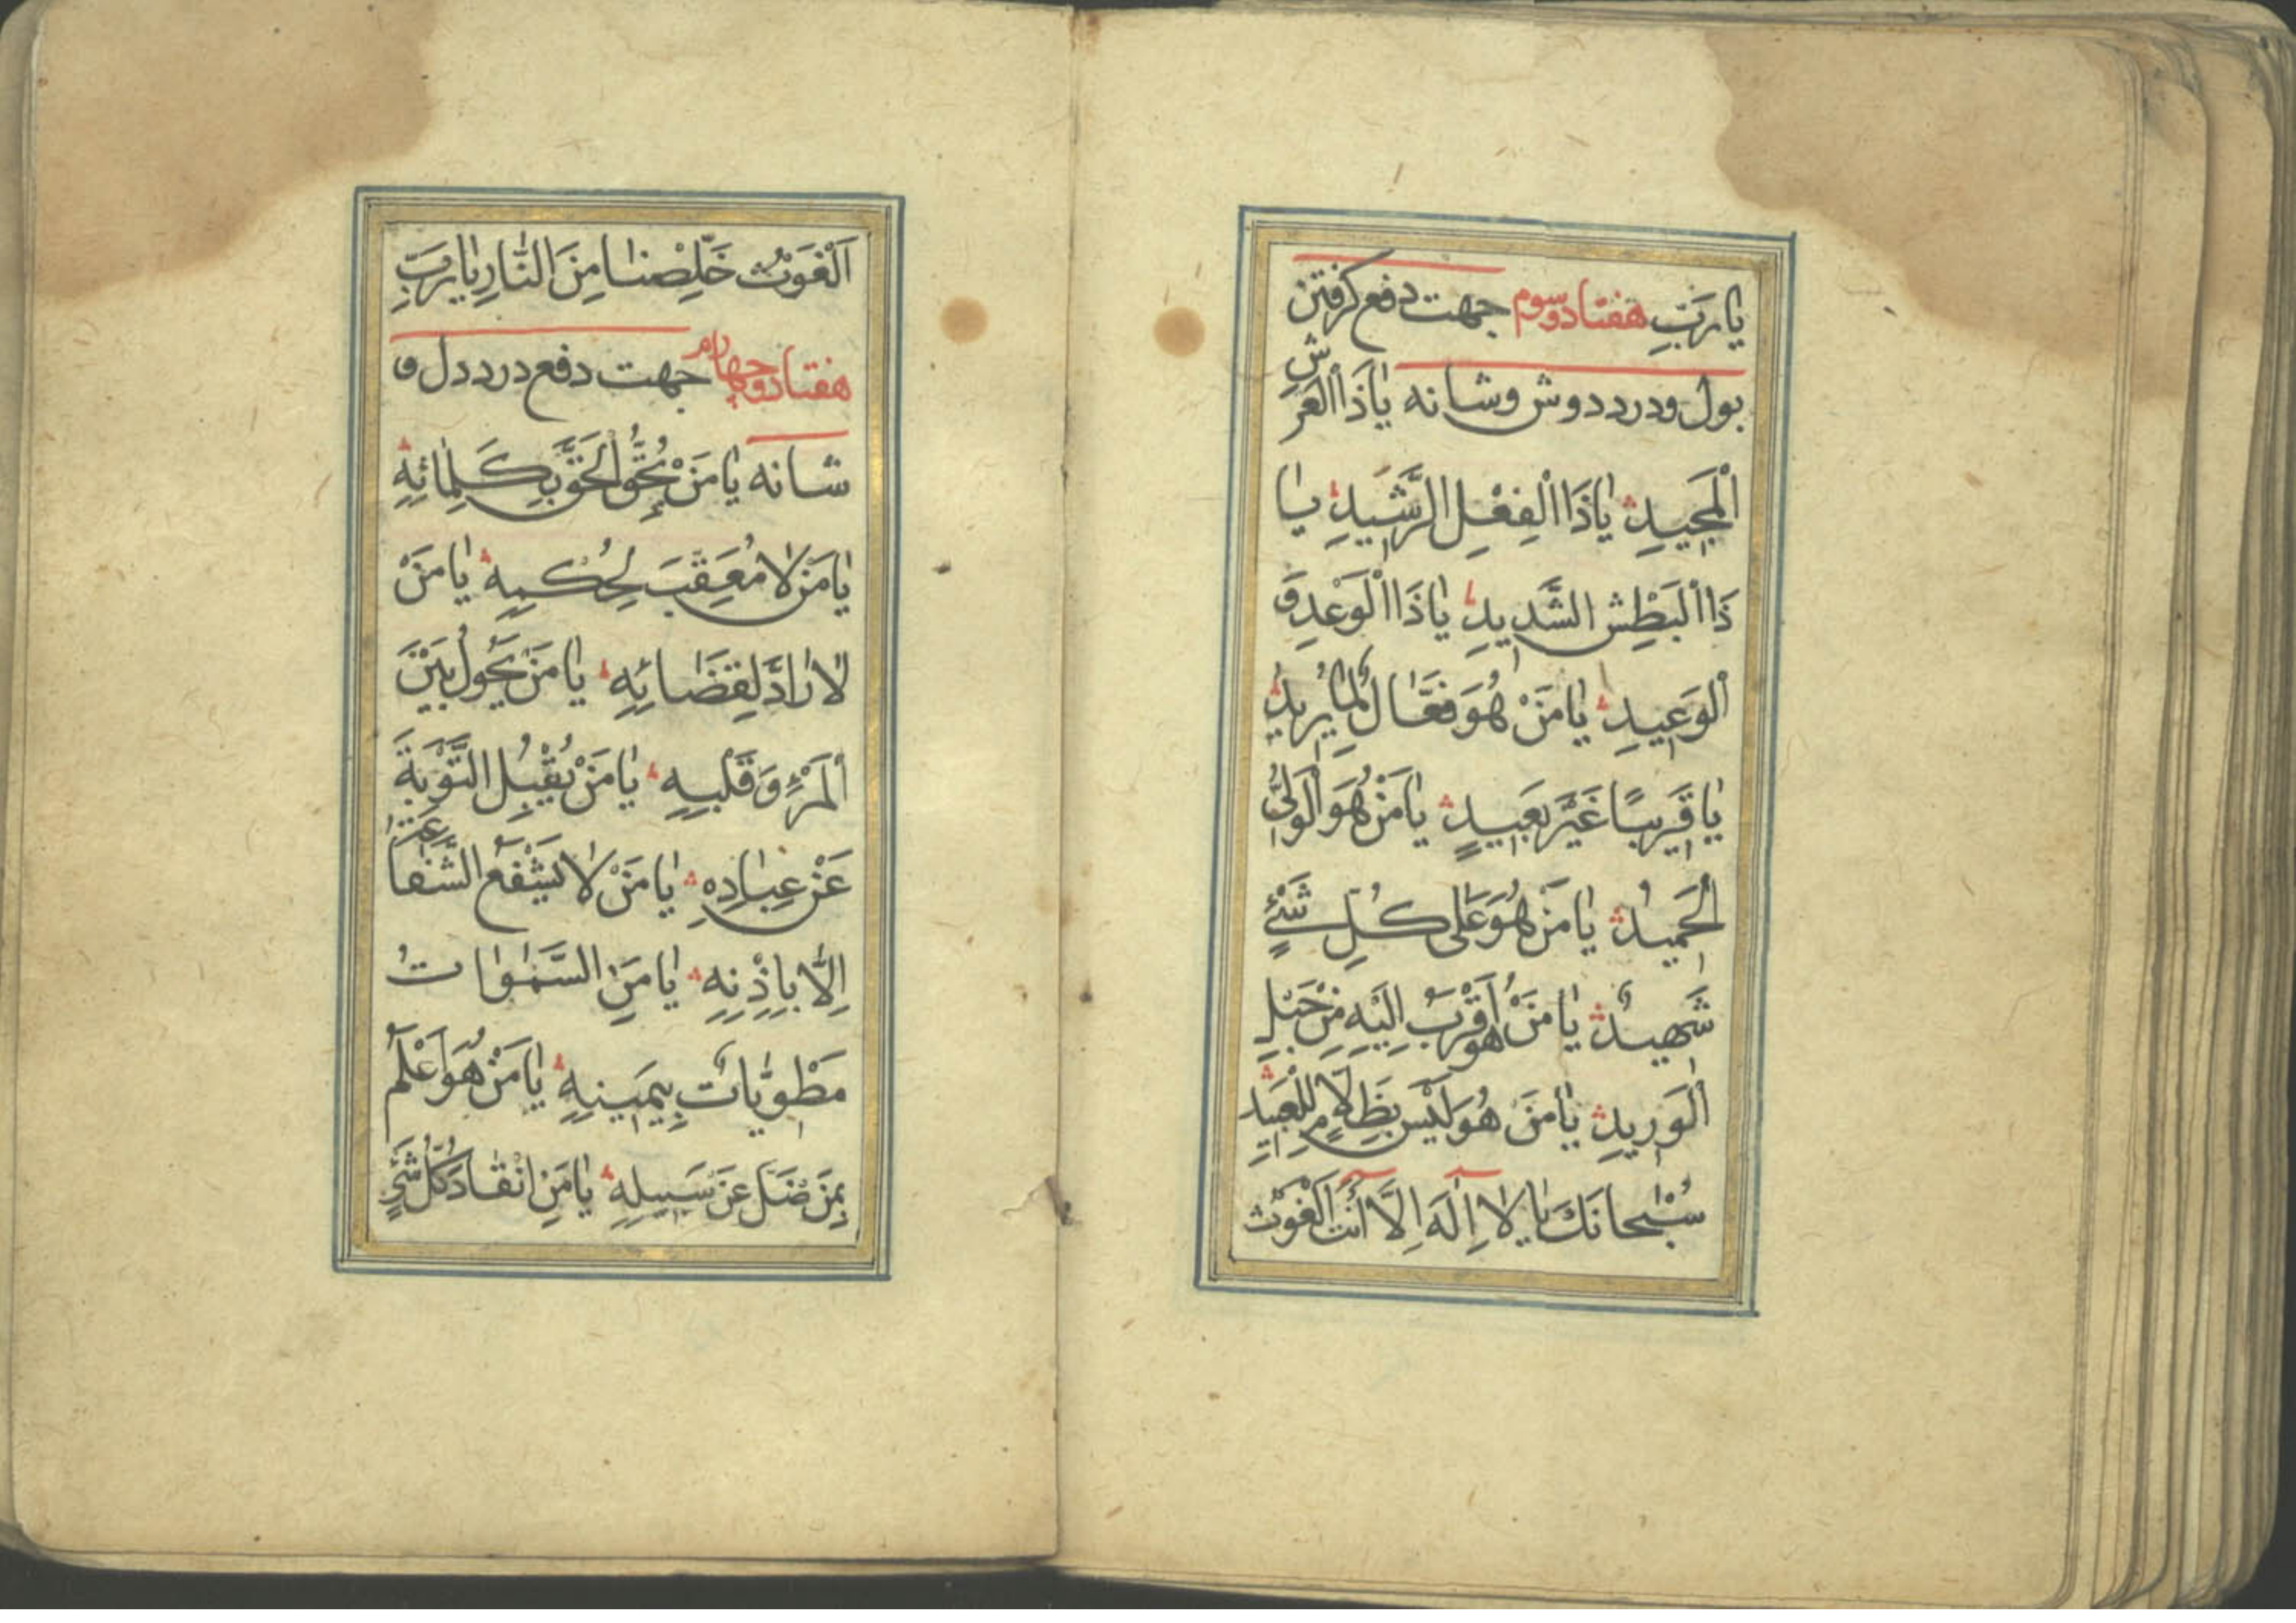 يا رَبِّ هفتاد وسوم جهت دفع گرفتن
بول ودرد دوش وشانه يا ذَا الْعَرْشِ
الْمَجِيدِ يا ذَا الْفِعْلِ الرَّشِيدِ يا
ذَا الْبَطْشِ الشَّدِيدِ يا ذَا الْوَعْدِ وَ
الْوَعِيدِ يا مَنْ هُوَ فَعَّالٌ لِمَا يُرِيدُ
يا قَرِيبًا غَيْرَ بَعِيدٍ يا مَنْ هُوَ الْوَلِيُّ
الْحَمِيدُ يا مَنْ هُوَ عَلى كُلِّ شَيْءٍ
شَهِيدٌ يا مَنْ هُوَ أَقْرَبُ اِلَيْهِ مِنْ حَبْلِ
الْوَرِيدِ يا مَنْ هُوَ لَيْسَ بِظَلَّامٍ لِلْعَبِيدِ
سُبْحانَكَ يا لا اِلَهَ اِلَّا أَنْتَ الْغَوْثَ
اَلْغَوْثَ خَلِّصْنا مِنَ النَّارِ يا رَبِّ
هفتاد وچهارم جهت دفع درد دل و
شانه يا مَنْ يُحِقُّ الْحَقَّ بِكَلِمَاتِهِ
يا مَنْ لا مُعَقِّبَ لِحُكْمِهِ يا مَنْ
لا رَادَّ لِقَضَائِهِ يا مَنْ يَحُولُ بَيْنَ
الْمَرْءِ وَ قَلْبِهِ يا مَنْ يَقْبِلُ التَّوْبَةَ
عَنْ عِبَادِهِ يا مَنْ لا تَشْفَعُ الشَّفَاعَةُ
اِلَّا بِاِذْنِهِ يا مَنِ السَّمٰوَاتُ
مَطْوِيَّاتٌ بِيَمِينِهِ يا مَنْ هُوَ أَعْلَمُ
بِمَنْ ضَلَّ عَنْ سَبِيلِهِ يا مَنِ انْقَادَ كُلُّ شَيْءٍ